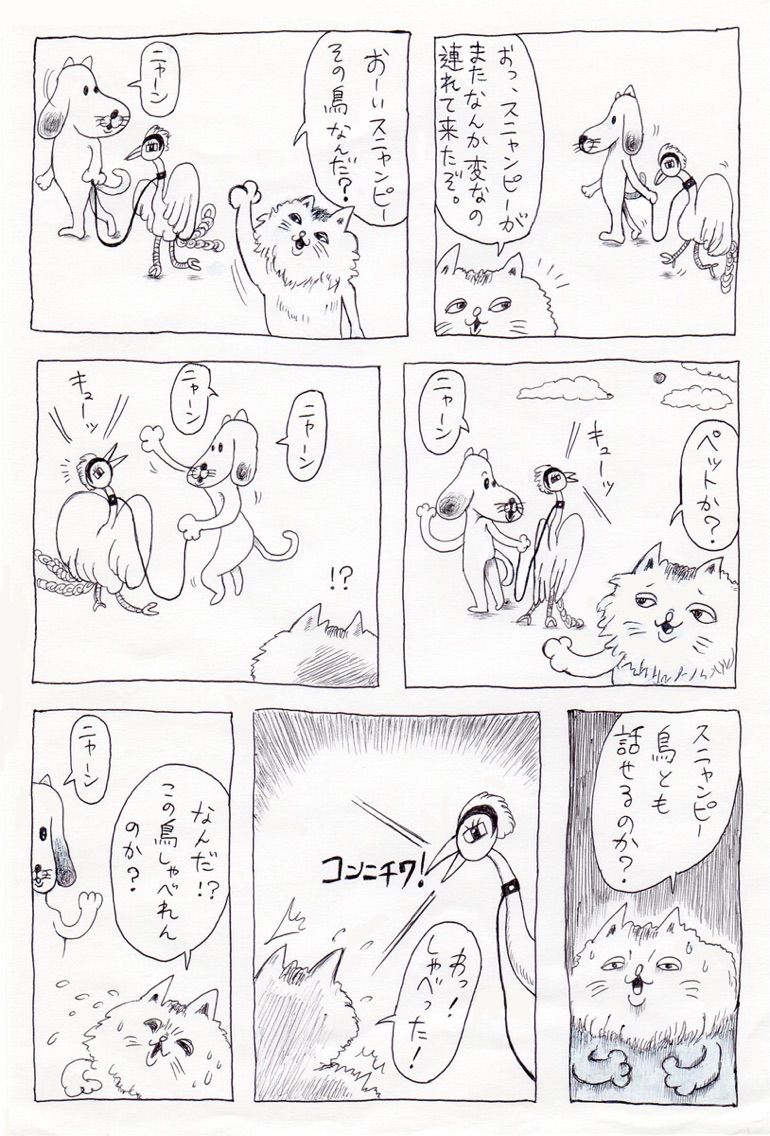 おっ、スニャンピーが
またなんか変なの
連れて来たぞ。
おーいスニャンピー
その鳥なんだ?
ニャーン
ペットか?
キューッ
ニャーン
ニャーン
ニャーン
キューッ
!?
スニャンピー
鳥とも
話せるのか?
コンニチワ!
わっ!
しゃべった!
なんだ!?
この鳥しゃべれん
のか?
ニャーン